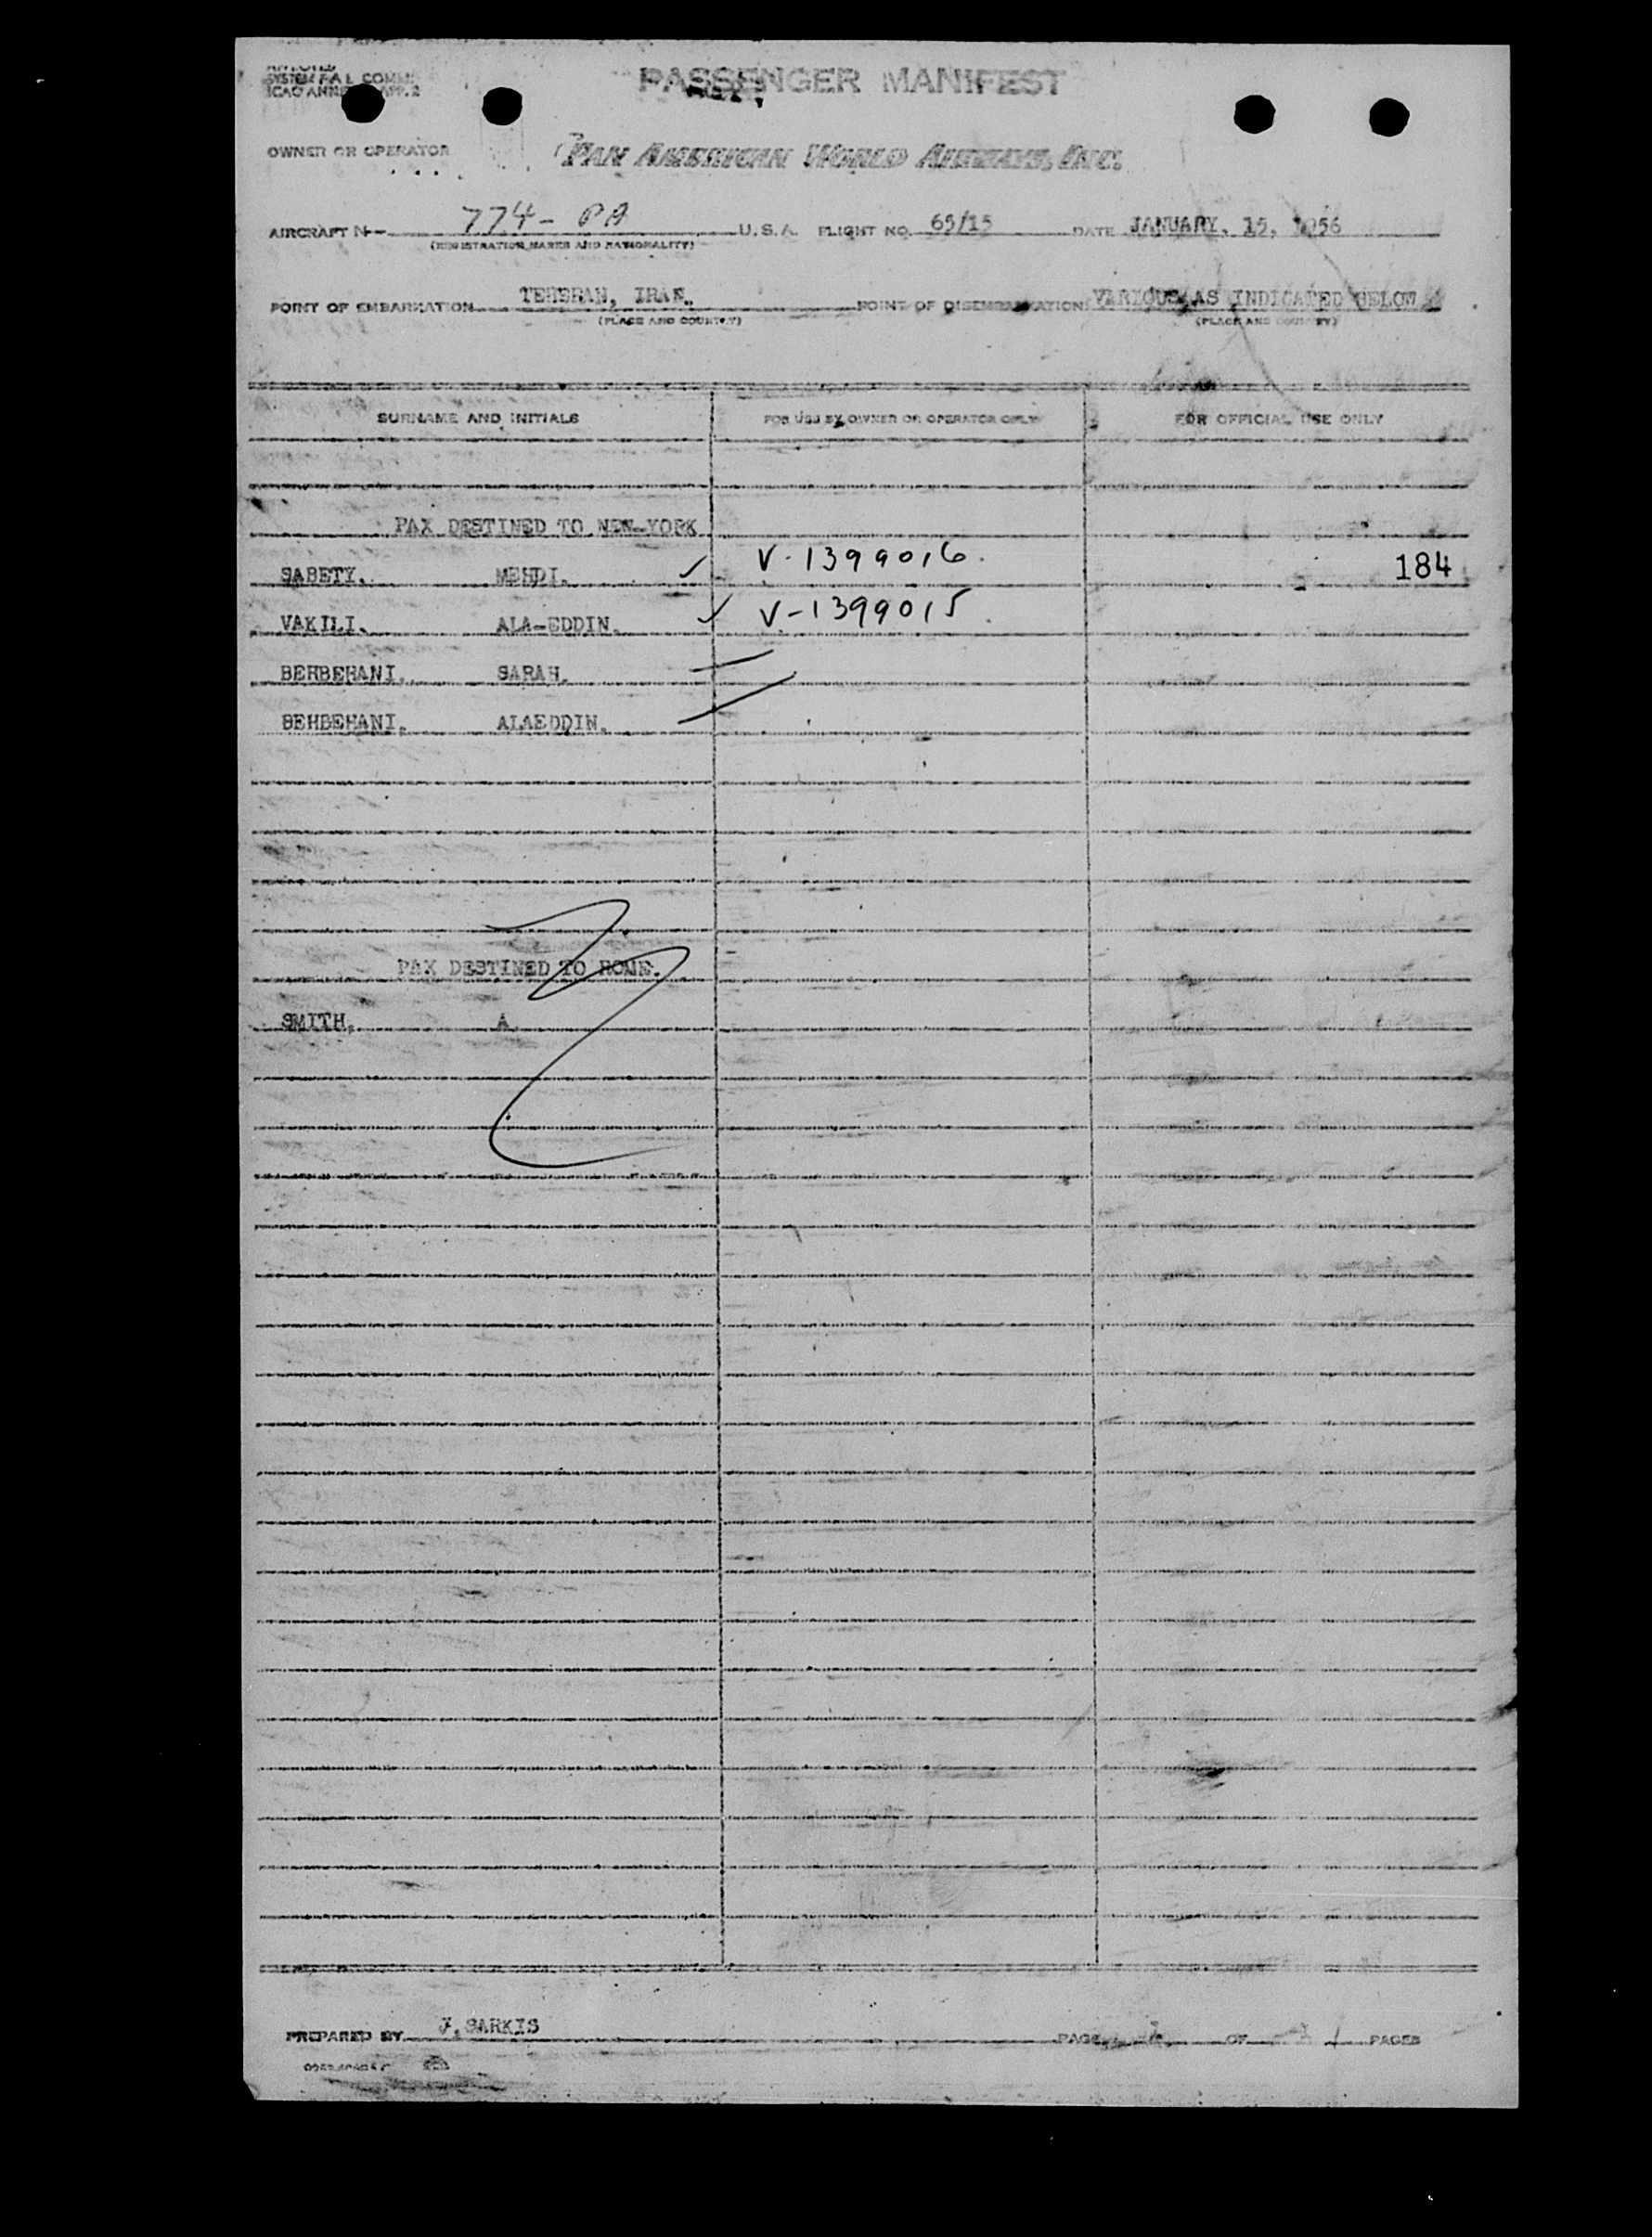 SYSTEM F.A.L. COMM.
ICAO ANNE APP. 2
PASSENGER MANIFEST
OWNER OR OPERATOR PAN AMERICAN WORLD AIRWAYS, INC.
AIRCRAFT N- 774- PA U.S.A. FLIGHT NO. 65/15 DATE JANUARY. 15, 1956
(REGISTRATION MARKS AND NATIONALITY)
POINT OF EMBARKATION TEHERAN, IRAN. POINT OF DISEMBARKATION VARIOUS AS INDICATED BELOW
(PLACE AND COUNTRY) (PLACE AND COUNTRY)
SURNAME AND INITIALS FOR USE BY OWNER OR OPERATOR ONLY FOR OFFICIAL USE ONLY
PAX DESTINED TO NEW-YORK
SABETY. MEHDI. ✓ V-1399016. 184
VAKILI. ALA-EDDIN. ✓ V-1399015.
BEHBEHANI. SARAH.
BEHBEHANI. ALAEDDIN.
PAX DESTINED TO ROME.
SMITH. A
PREPARED BY J.SARKIS PAGE 1 OF 1 PAGES